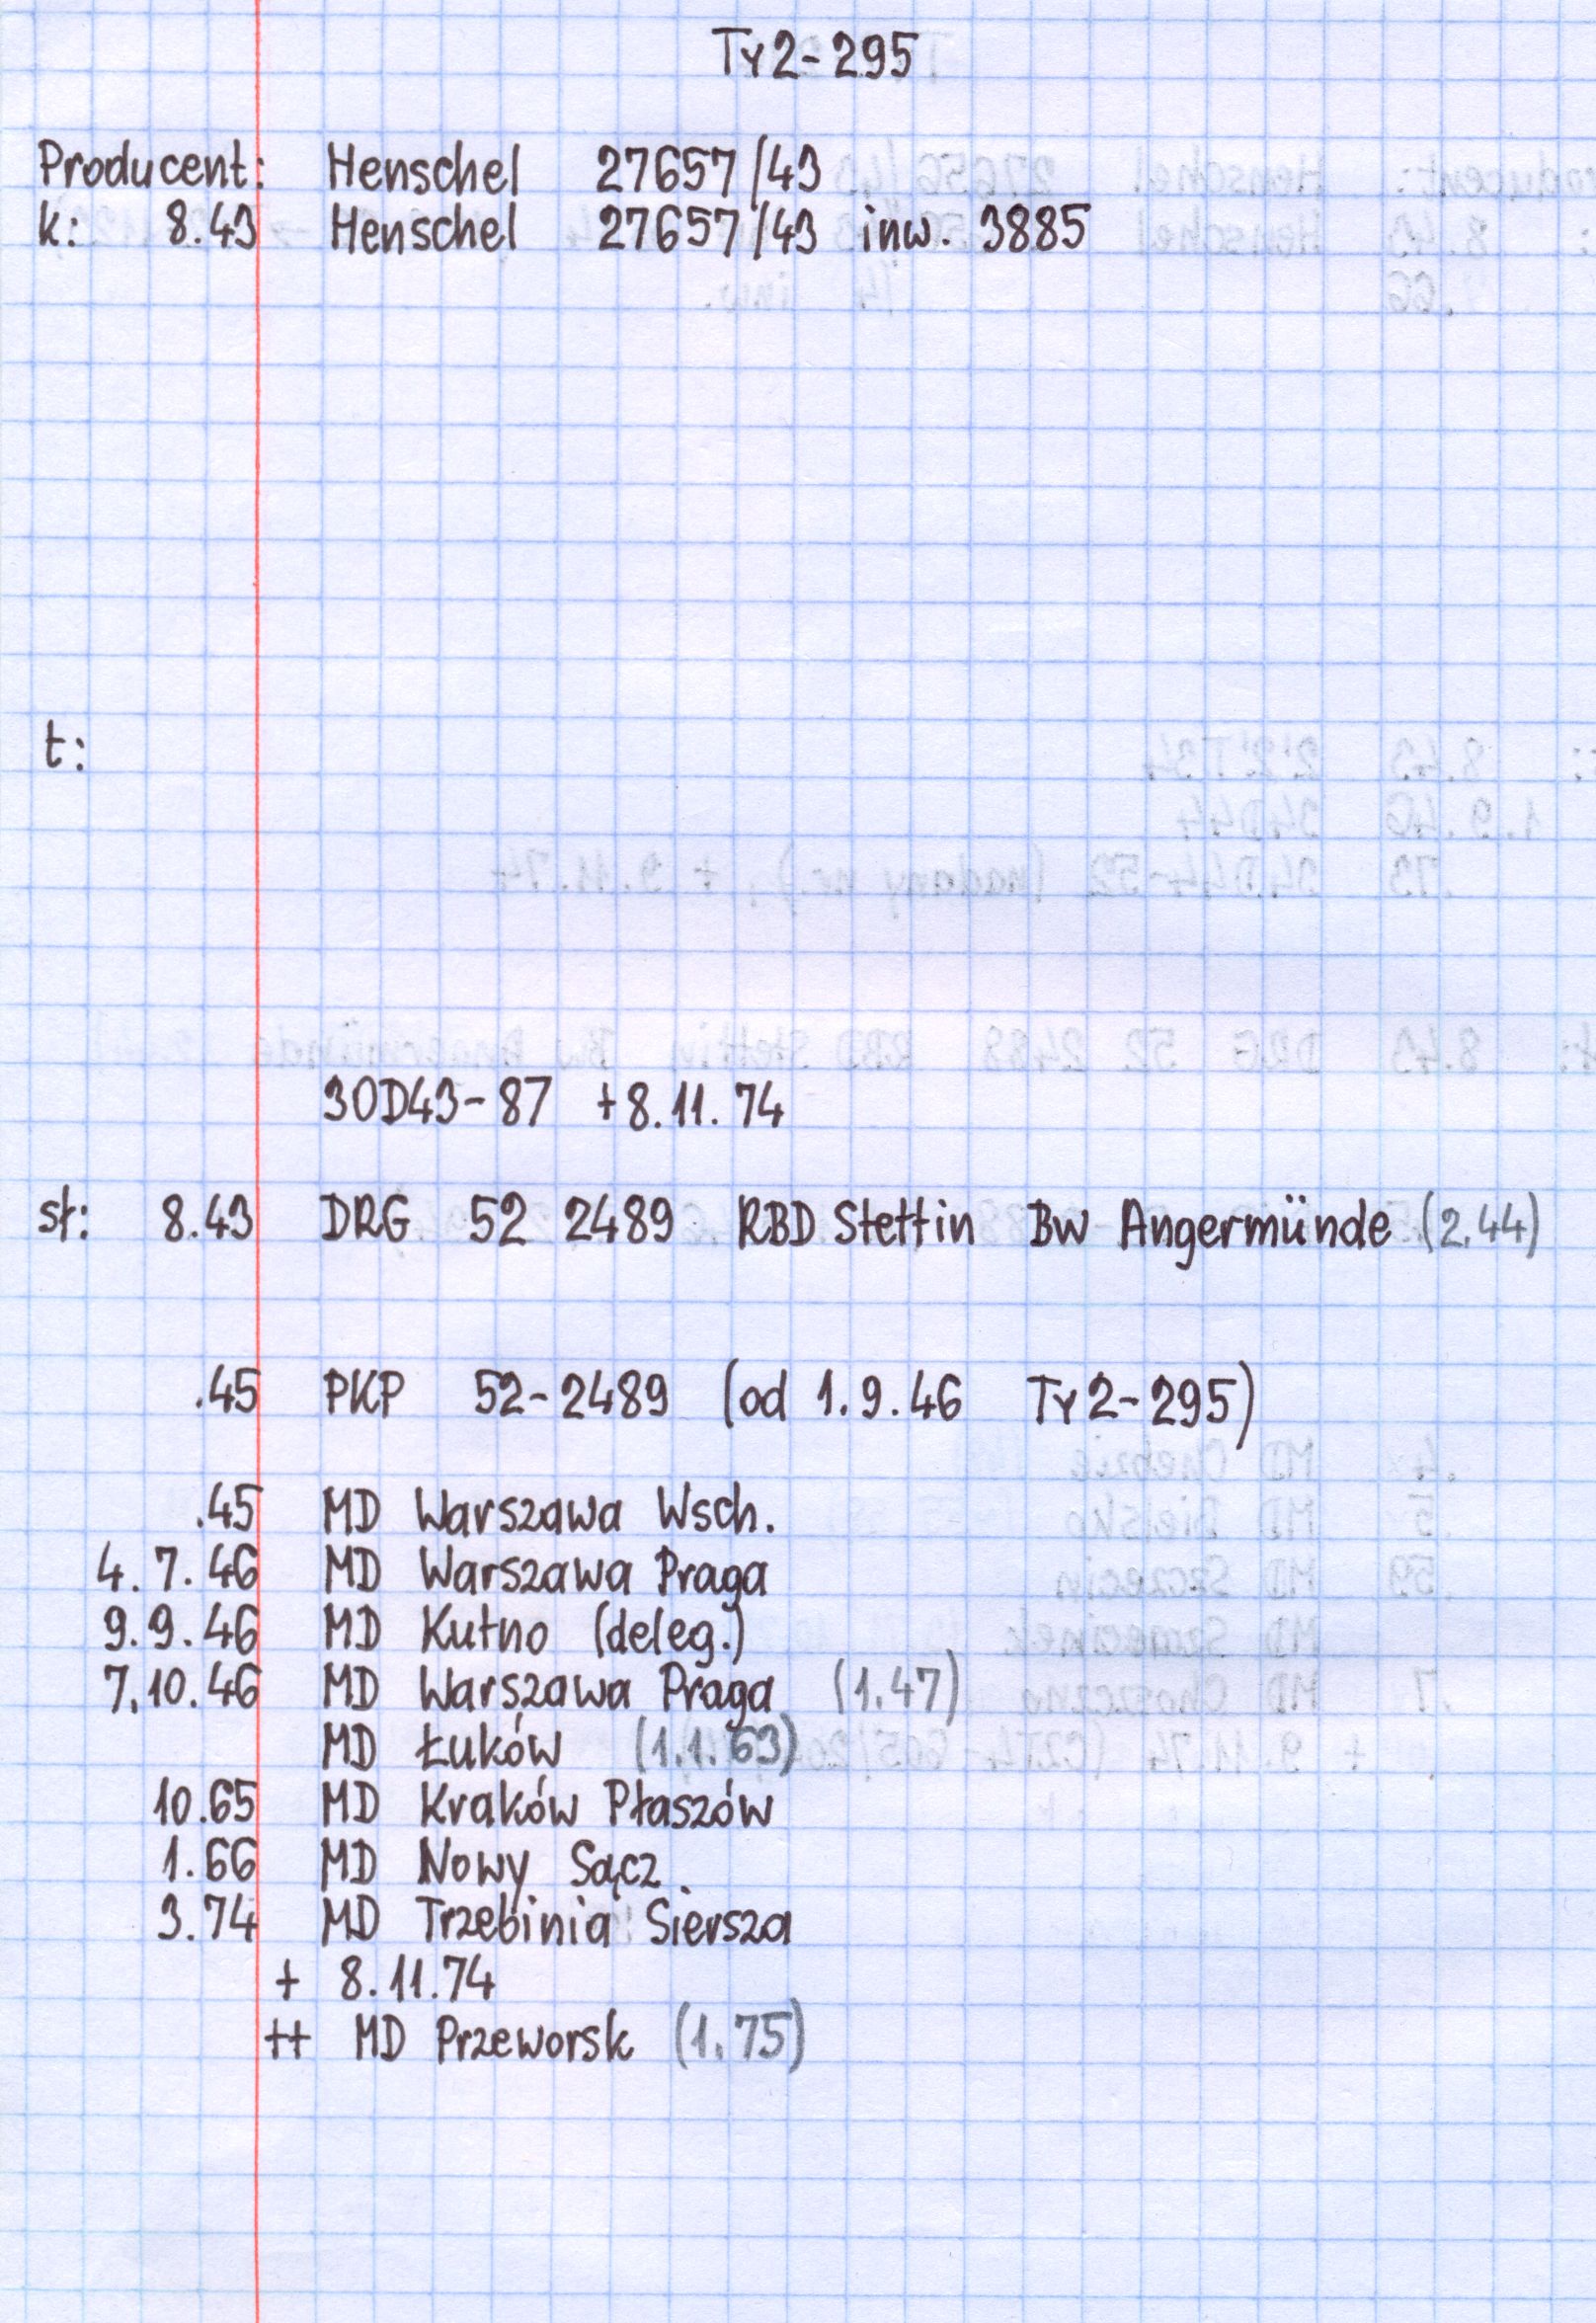 Ty2-295
Producent: Henschel 27657/43
k: 8.43 Henschel 27657/43 inw. 3885
t:
30D43-87 +8.11.74
st: 8.43 DRG 52 2489 RBD Stettin Bw Angermünde (2.44)
.45 PKP 52-2489 (od 1.9.46 Ty2-295)
.45 MD Warszawa Wsch.
4.7.46 MD Warszawa Praga
9.9.46 MD Kutno (deleg.)
7.10.46 MD Warszawa Praga (1.47)
MD Łuków (1.1.63)
10.65 MD Kraków Płaszów
1.66 MD Nowy Sącz
3.74 MD Trzebinia Siersza
+ 8.11.74
++ MD Przeworsk (1.75)